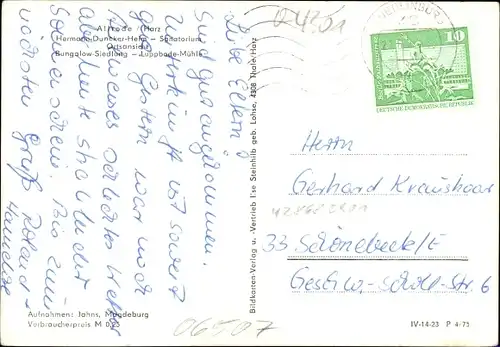 Altrode /Harz
Hermann-Duncker-Heim – Sanatorium
Ortsansicht
Bungalow-Siedlung – Luppbode-Mühle
Liebe Eltern!
Sind gut angekommen.
Unterkunft ist soweit
gut. Gestern war noch
schlechtes Wetter
aber heute strahlender
Sonnenschein. Bis zum
nächsten Gruß Roland +
Aufnahmen: Jahns, Magdeburg
Verbraucherpreis M 0,25
Bildkarten-Verlag u. -Vertrieb Ilse Steinhilb geb. Lohse, 4308 Thale/Harz
04301
10
DEUTSCHE DEMOKRATISCHE REPUBLIK
Herrn
Gerhard Kraushaar
33 Schönebeck/E
Geschw.-Scholl-Str. 6
06507
IV-14-23 P 4-75